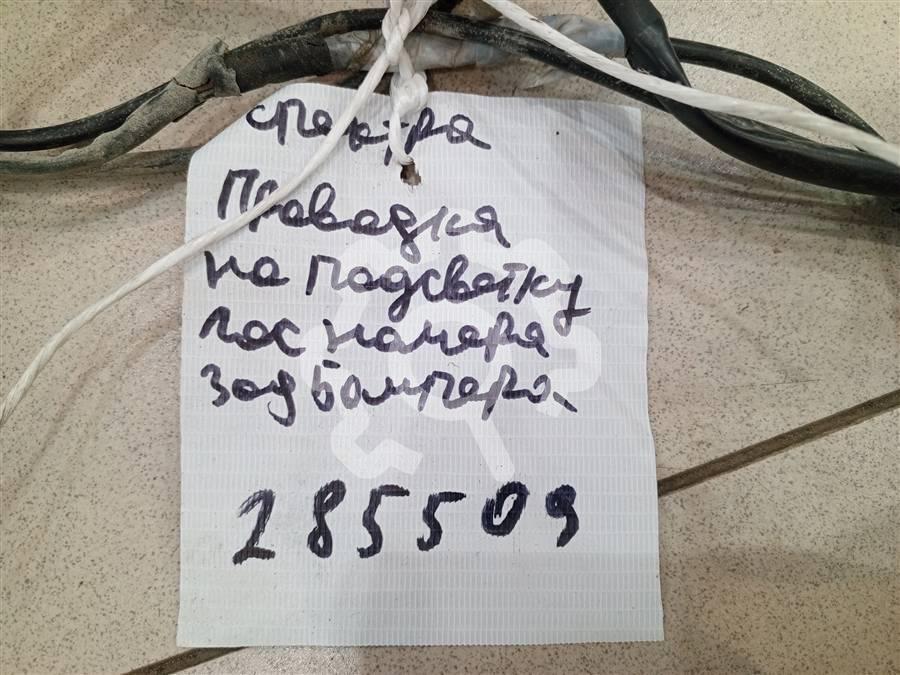 спектра
Правадка
на падсветку
гос намера
зад бампера
285509